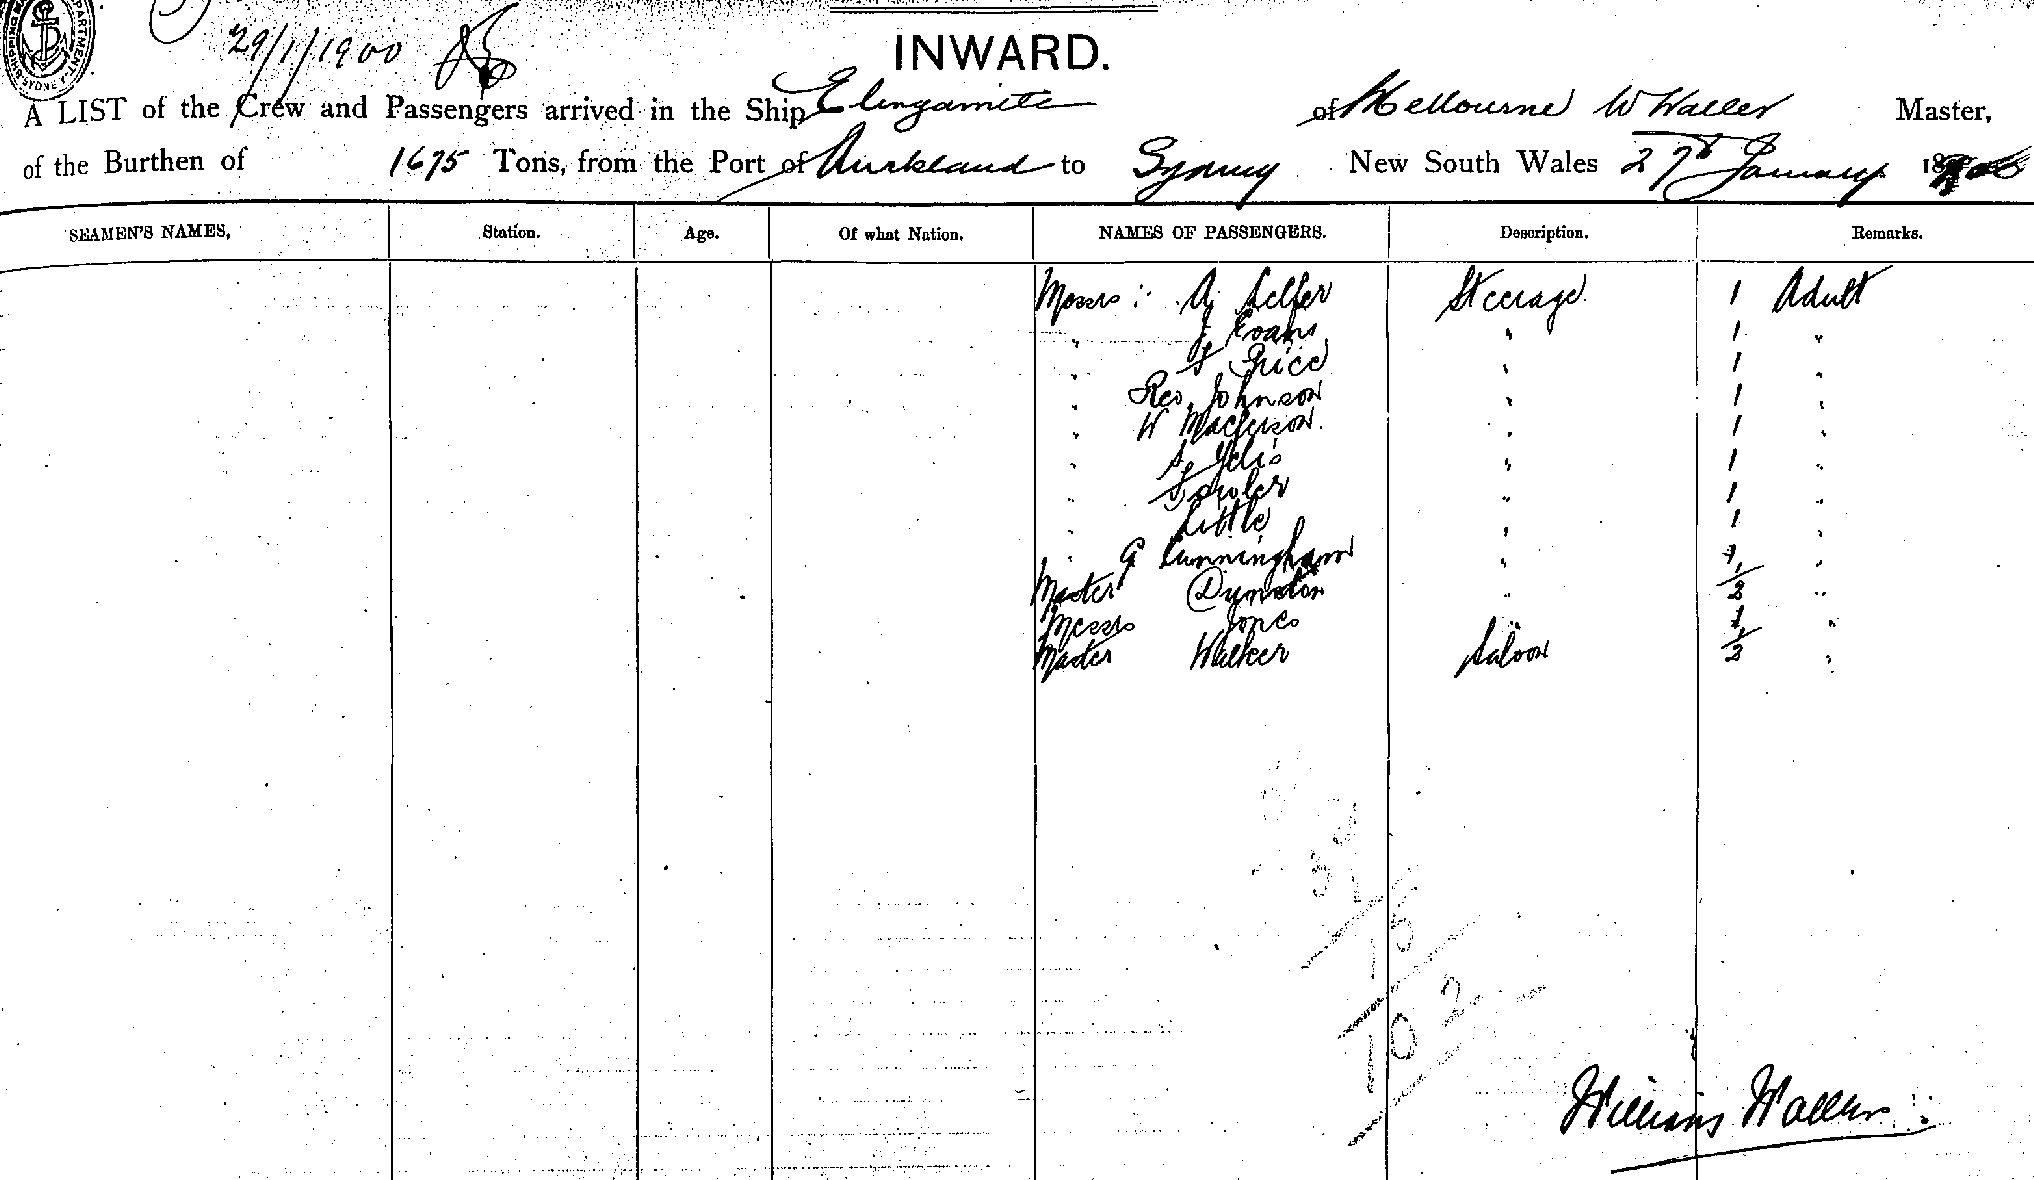 29/1/1900
INWARD.
A LIST of the Crew and Passengers arrived in the Ship Elingamite of Melbourne W Waller Master,
of the Burthen of 1675 Tons, from the Port of Auckland to Sydney New South Wales 27th January 1900
SEAMEN'S NAMES, Station. Age. Of what Nation. NAMES OF PASSENGERS. Description. Remarks.
Messrs : A Selfer Steerage 1 Adult
" J Evans " 1 "
" Price " 1 "
" Johnson " 1 "
" W " 1 "
" " 1 "
" Fowler " 1 "
" Little " 1 "
" G Cunningham " 1 "
Master Dunston " 1/2 "
Messrs Jones " 1 "
Master Walker Saloon 1/2 "
15
102
William Waller